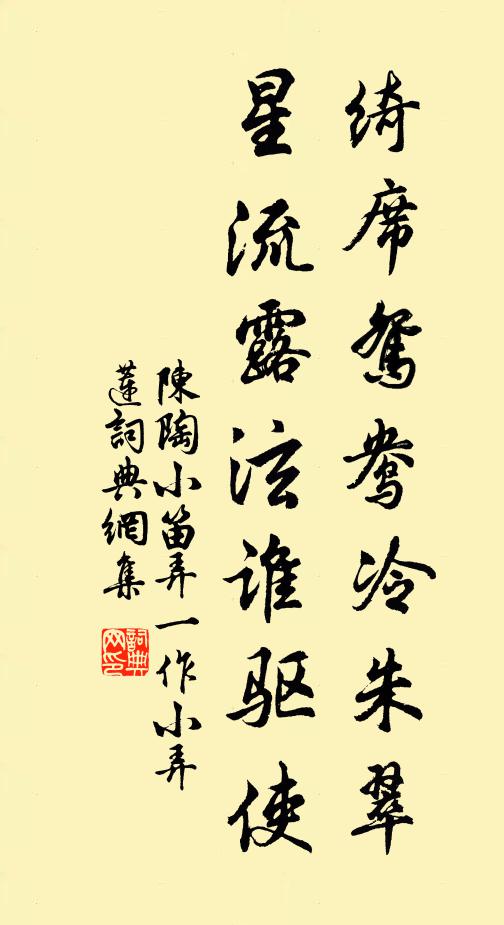 绮席鸳鸯冷朱翠
星流露泫谁驱使
陳陶小笛弄一作小弄
蓮詞典網集
詞典网印